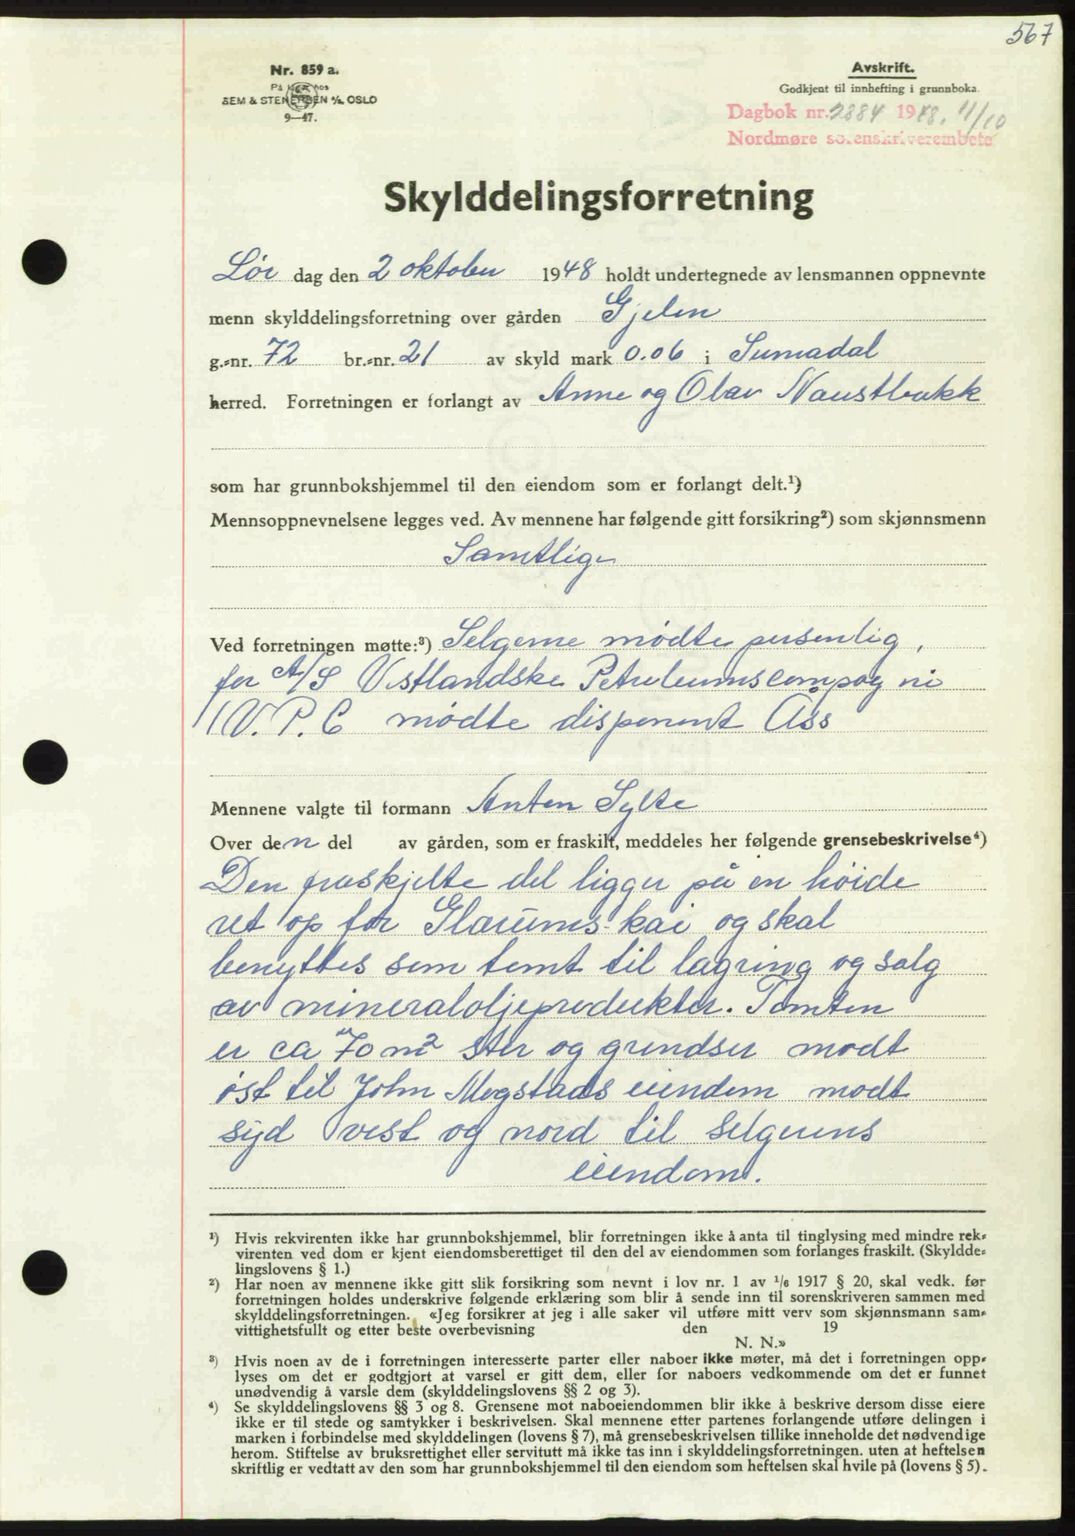 567
Nr. 859 a.
På lager hos
SEM & STENERSEN A/S OSLO
9—47.
Avskrift.
Godkjent til innhefting i grunnboka.
Dagbok nr. 2884 1948. 11/10
Nordmøre sorenskriverembete
Skylddelingsforretning
Lør dag den 2 oktober 1948 holdt undertegnede av lensmannen oppnevnte
menn skylddelingsforretning over gården Gjelen
g.-nr. 72 br.-nr. 21 av skyld mark 0.06 i Surnadal
herred. Forretningen er forlangt av Anne og Olav Naustbakk
som har grunnbokshjemmel til den eiendom som er forlangt delt.¹)
Mennsoppnevnelsene legges ved. Av mennene har følgende gitt forsikring²) som skjønnsmenn
Samtlige
Ved forretningen møtte:³) Selgerne mødte personlig,
for A/S Vestlandske Petroleumscompagni
V.P.C mødte disponent Ass
Mennene valgte til formann Anton Sylte
Over den del av gården, som er fraskilt, meddeles her følgende grensebeskrivelse⁴)
Den fraskjelte del ligger på en høide
ret op for Glærums-kai og skal
benyttes som tomt til lagring og salg
av mineraloljeprodukter. Tomten
er ca 70 m² stor og grendser modt
øst til John Mogstads eiendom modt
syd vest og nord til selgerens
eiendom.
¹) Hvis rekvirenten ikke har grunnbokshjemmel, blir forretningen ikke å anta til tinglysing med mindre rek-
virenten ved dom er kjent eiendomsberettiget til den del av eiendommen som forlanges fraskilt. (Skyldde-
lingslovens § 1.)
²) Har noen av mennene ikke gitt slik forsikring som nevnt i lov nr. 1 av 1/6 1917 § 20, skal vedk. før
forretningen holdes underskrive følgende erklæring som blir å sende inn til sorenskriveren sammen med
skylddelingsforretningen. «Jeg forsikrer at jeg i alle saker vil utføre mitt verv som skjønnsmann sam-
vittighetsfullt og etter beste overbevisning den 19
N. N.»
³) Hvis noen av de i forretningen interesserte parter eller naboer ikke møter, må det i forretningen opp-
lyses om det er godtgjort at varsel er gitt dem, eller for naboers vedkommende om det er funnet
unødvendig å varsle dem (skylddelingslovens §§ 2 og 3).
⁴) Se skylddelingslovens §§ 3 og 8. Grensene mot naboeiendommen blir ikke å beskrive dersom disse eiere
ikke er til stede og samtykker i beskrivelsen. Skal mennene etter partenes forlangende utføre delingen i
marken i forbindelse med skylddelingen (lovens § 7), må grensebeskrivelsen tillike inneholde det nødvendige
herom. Stiftelse av bruksrettighet eller servitutt må ikke tas inn i skylddelingsforretningen, uten at heftelsen
skriftlig er vedtatt av den som har grunnbokshjemmel til den eiendom som heftelsen skal hvile på (lovens § 5).